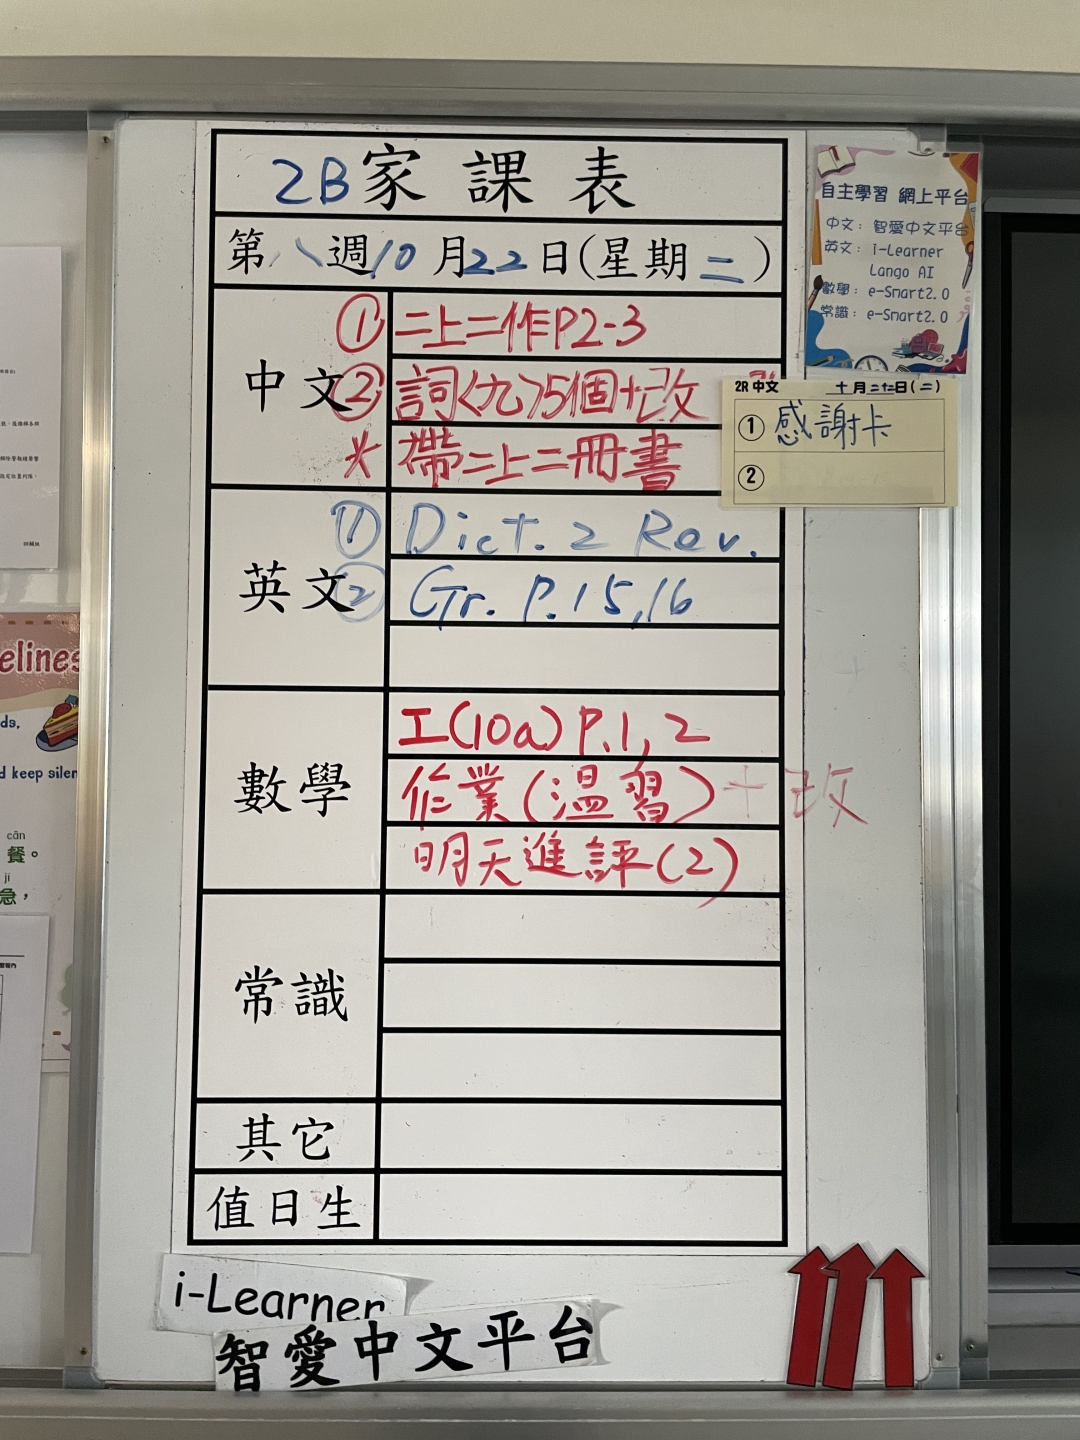 2B家課表
第八週10月22日(星期二)
中文
① 二上二作P2-3
② 詞<九>5個+改
* 帶二上二冊書
英文
① Dict. 2 Rev.
② Gr. P.15,16
數學
工(10a) P.1, 2
作業(温習)+改
明天進評(2)
常識
其它
值日生
i-Learner
智愛中文平台
自主學習 網上平台
中文：智愛中文平台
英文：i-Learner
Lango AI
數學：e-Smart2.0
常識：e-Smart2.0
2R 中文
十月二十二日(二)
① 感謝卡
②
elines
ds,
d keep silen
cān
餐。
jí
急，